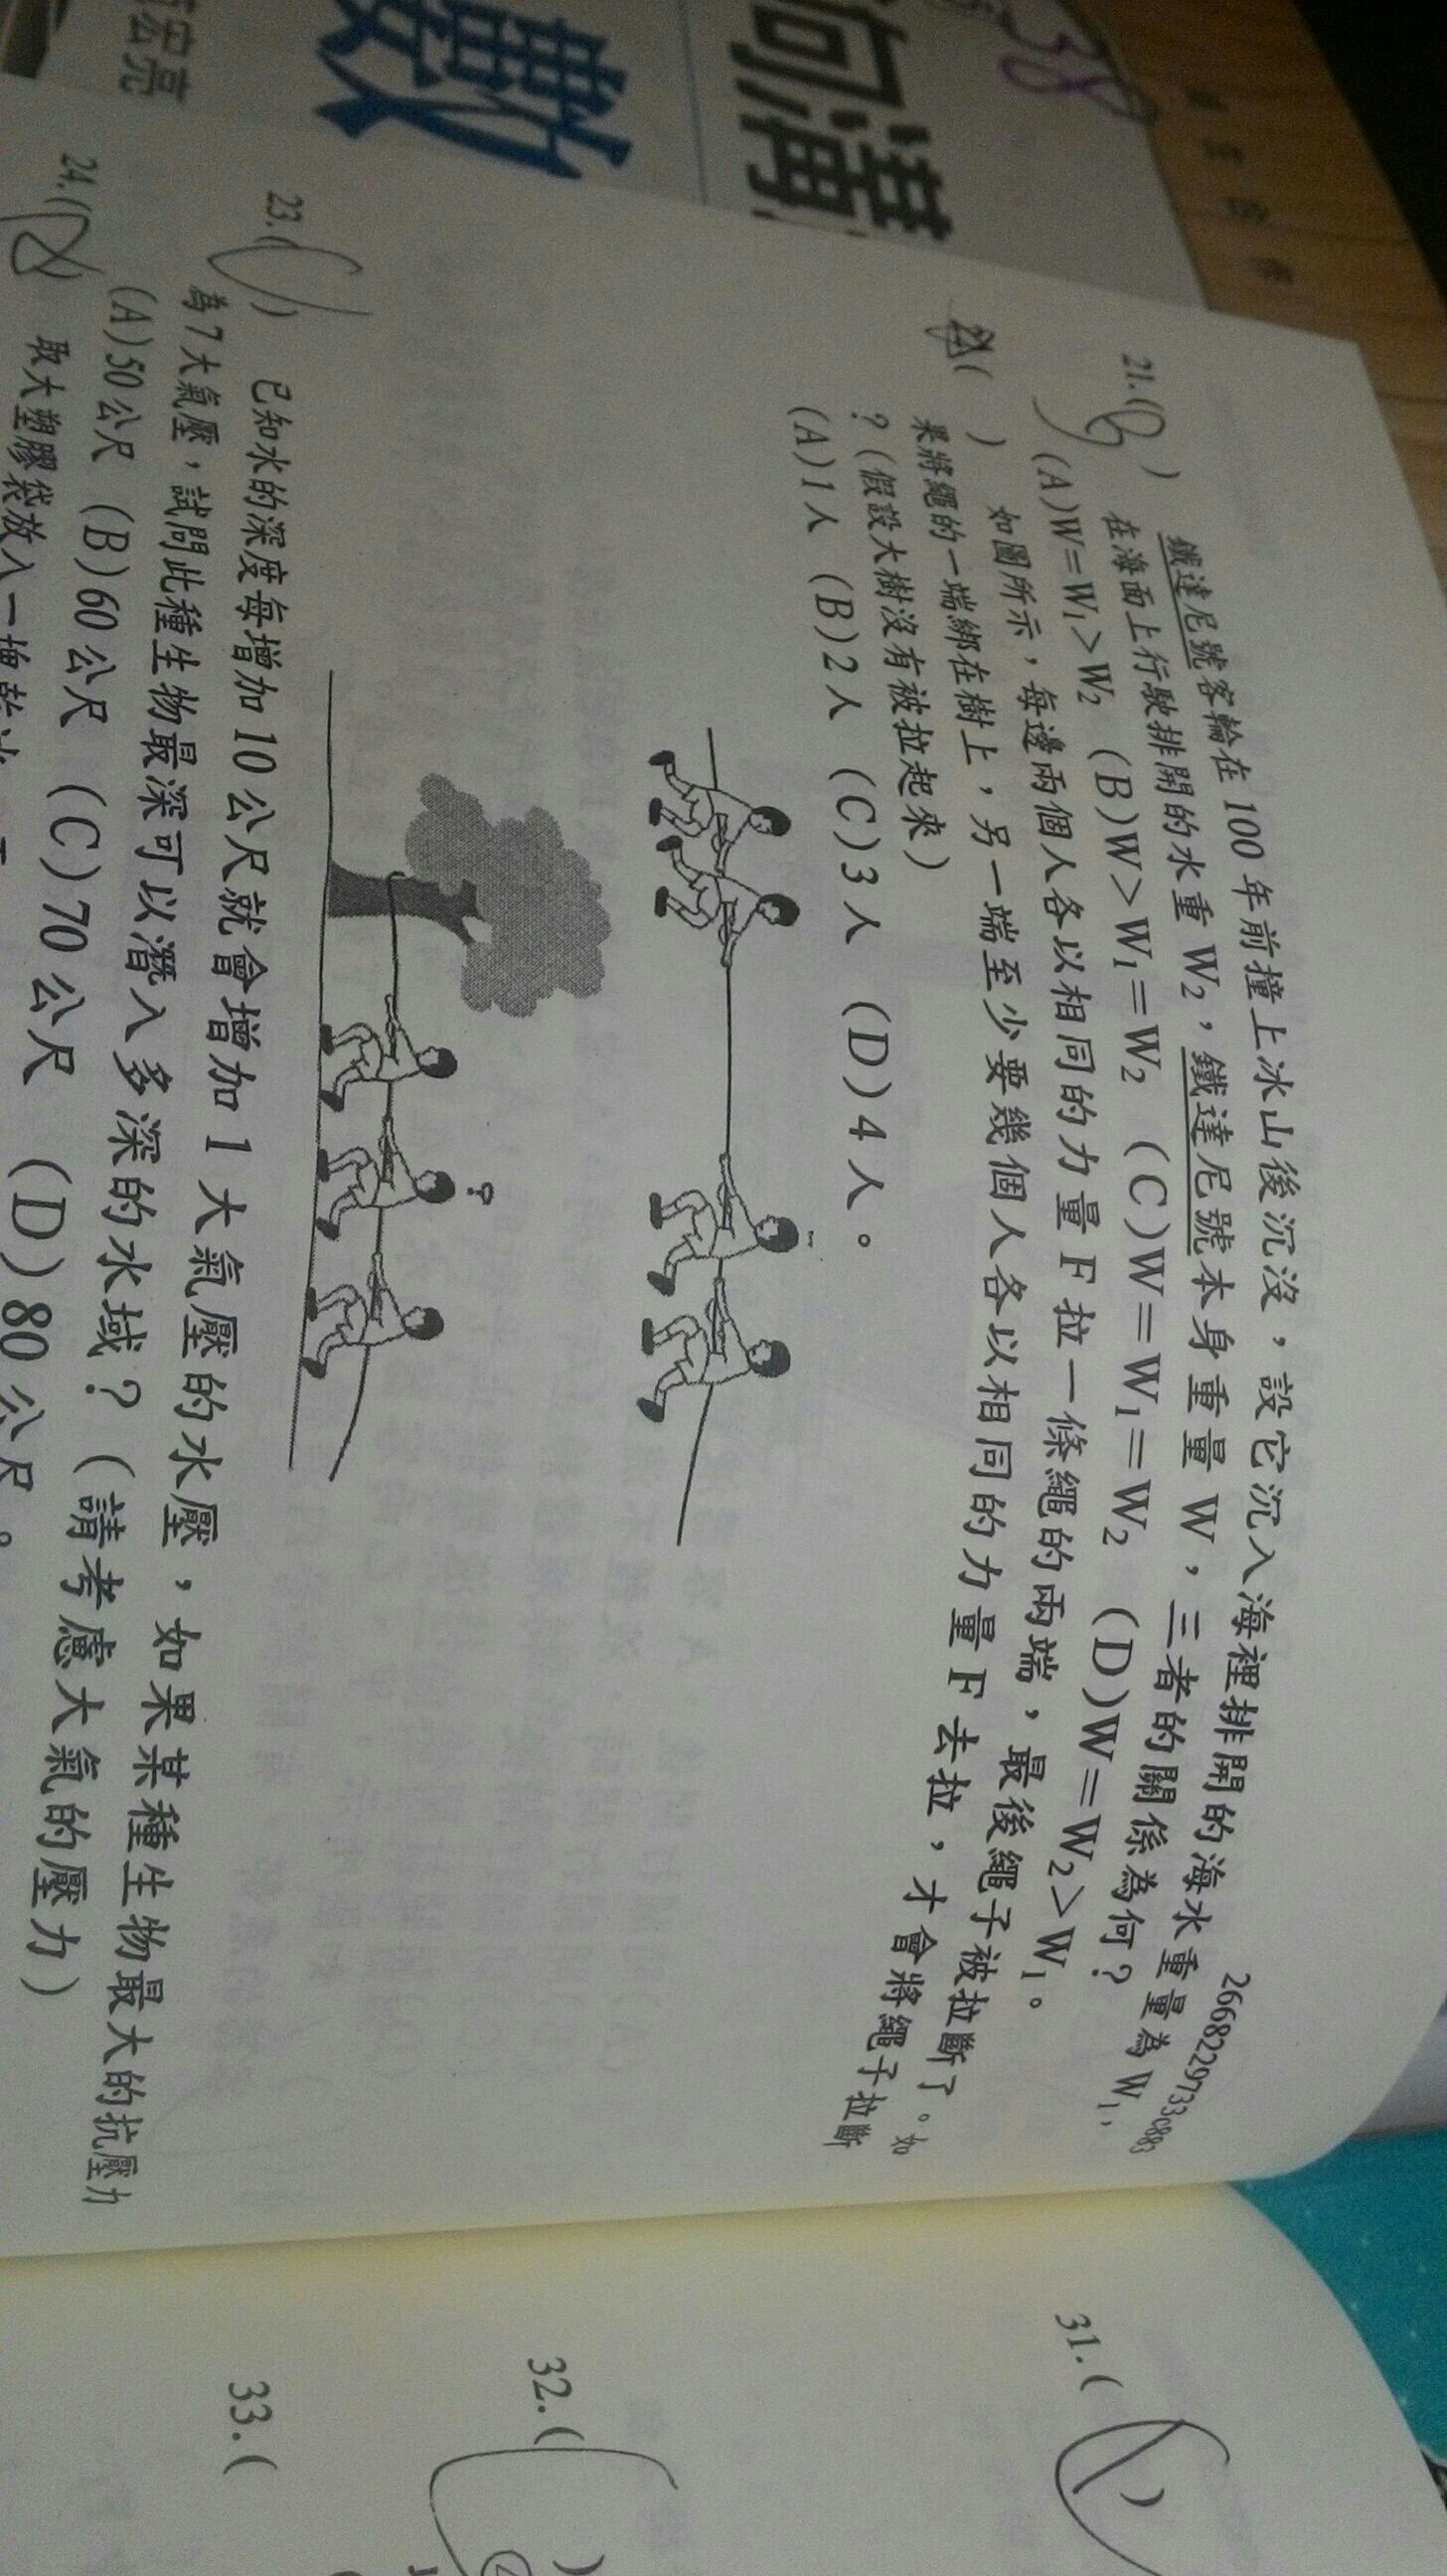 38
向溝
數
宏亮
2668229733c883
21.( )
鐵達尼號客輪在100年前撞上冰山後沉沒，設它沉入海裡排開的海水重量為W₁，
在海面上行駛排開的水重W₂，鐵達尼號本身重量W，三者的關係為何？
(A)W＝W₁＞W₂ (B)W＞W₁＝W₂ (C)W＝W₁＝W₂ (D)W＝W₂＞W₁。
( ) 如圖所示，每邊兩個人各以相同的力量F拉一條繩的兩端，最後繩子被拉斷了。如
果將繩的一端綁在樹上，另一端至少要幾個人各以相同的力量F去拉，才會將繩子拉斷
？(假設大樹沒有被拉起來)
(A)1人 (B)2人 (C)3人 (D)4人。
?
23.( ) 已知水的深度每增加10公尺就會增加1大氣壓的水壓，如果某種生物最大的抗壓力
為7大氣壓，試問此種生物最深可以潛入多深的水域？(請考慮大氣的壓力)
(A)50公尺 (B)60公尺 (C)70公尺 (D)80公尺。
24.( ) 取大塑膠袋放入一
31.( )
32.( )
33.(